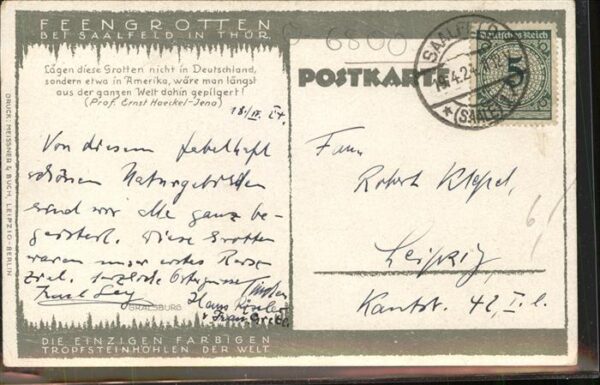 FEENGROTTEN
BEI SAALFELD IN THÜR.
Lägen diese Grotten nicht in Deutschland,
sondern etwa in Amerika, wäre man längst
aus der ganzen Welt dahin gepilgert!
(Prof. Ernst Haeckel-Jena)
18./IV. 24.
Von diesem fabelhaft
schönen Naturgebilden
sind wir alle ganz be-
geistert. Diese Grotten
waren unser erstes Reise-
ziel. herzliche Ostergrüsse
Hans
GRALSBURG
DIE EINZIGEN FARBIGEN
TROPFSTEINHÖHLEN DER WELT
DRUCK: MEISSNER & BUCH, LEIPZIG-BERLIN
6800
POSTKARTE
SAALFELD
4.24
(SAALE)
Deutsches Reich
5
Robert
Leipzig
Kantstr. 42, I. l.